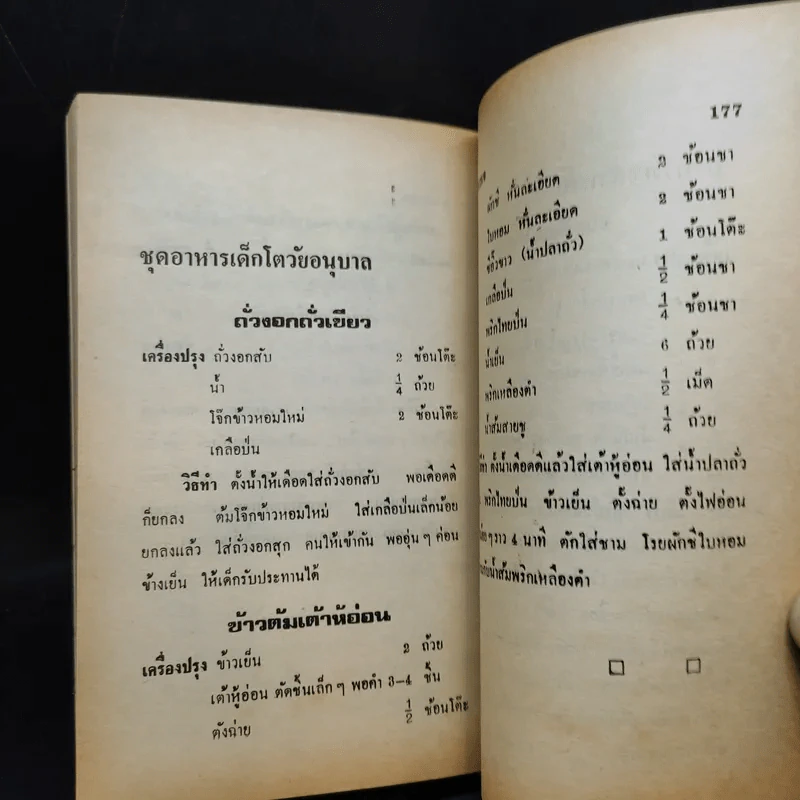 ชุดอาหารเด็กโตวัยอนุบาล
ถั่วงอกถั่วเขียว
เครื่องปรุง ถั่วงอกสับ 2 ช้อนโต๊ะ
น้ำ 1/4 ถ้วย
โจ๊กข้าวหอมใหม่ 2 ช้อนโต๊ะ
เกลือป่น
วิธีทำ ตั้งน้ำให้เดือดใส่ถั่วงอกสับ พอเดือดดี
ก็ยกลง ต้มโจ๊กข้าวหอมใหม่ ใส่เกลือป่นเล็กน้อย
ยกลงแล้ว ใส่ถั่วงอกสุก คนให้เข้ากัน พออุ่นๆ ค่อน
ข้างเย็น ให้เด็กรับประทานได้
ข้าวต้มเต้าหู้อ่อน
เครื่องปรุง ข้าวเย็น 2 ถ้วย
เต้าหู้อ่อน ตัดชิ้นเล็กๆ พอคำ 3-4 ชิ้น
ตังฉ่าย 1/2 ช้อนโต๊ะ
177
ผักชี หั่นละเอียด 2 ช้อนชา
ใบหอม หั่นละเอียด 2 ช้อนชา
ซีอิ๊วขาว (น้ำปลาถั่ว) 1 ช้อนโต๊ะ
เกลือป่น 1/2 ช้อนชา
พริกไทยป่น 1/4 ช้อนชา
น้ำเย็น 6 ถ้วย
พริกเหลืองตำ 1/2 เม็ด
น้ำส้มสายชู 1/4 ถ้วย
ตั้งน้ำเดือดดีแล้วใส่เต้าหู้อ่อน ใส่น้ำปลาถั่ว
พริกไทยป่น ข้าวเย็น ตังฉ่าย ตั้งไฟอ่อน
ราว 4 นาที ตักใส่ชาม โรยผักชีใบหอม
น้ำส้มพริกเหลืองตำ